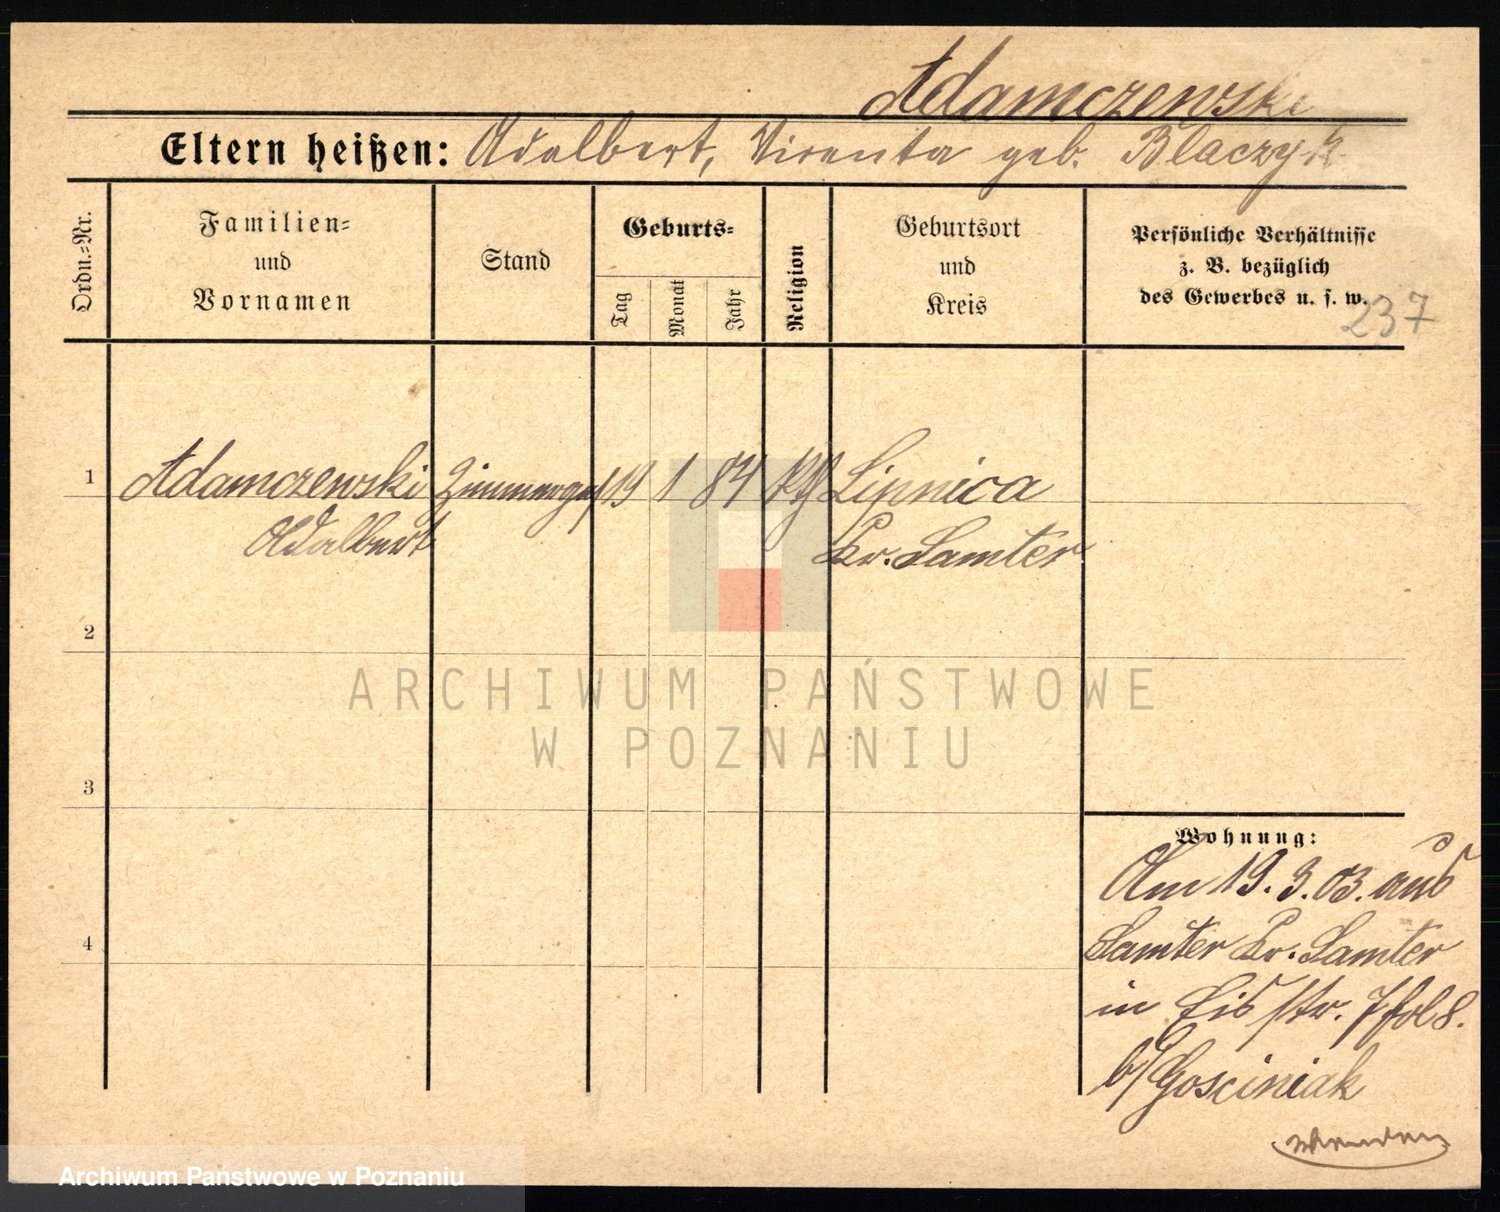 Adamczewski
Eltern heißen: Adalbert, Virenta geb. Blaczyk
Ordn.-Nr.
Familien-
und
Vornamen
Stand
Geburts-
Tag
Monat
Jahr
Religion
Geburtsort
und
Kreis
Persönliche Verhältnisse
z. B. bezüglich
des Gewerbes u. s. w.
237
1 Adamczewski Zimmerges 19 1 84 Lipnica
Adalbert Kr. Samter
2
3
4
Wohnung:
Am 19. 3. 03. aus
Samter Kr. Samter
in str. 7
b/ Gosciniak
ARCHIWUM PAŃSTWOWE
W POZNANIU
Archiwum Państwowe w Poznaniu